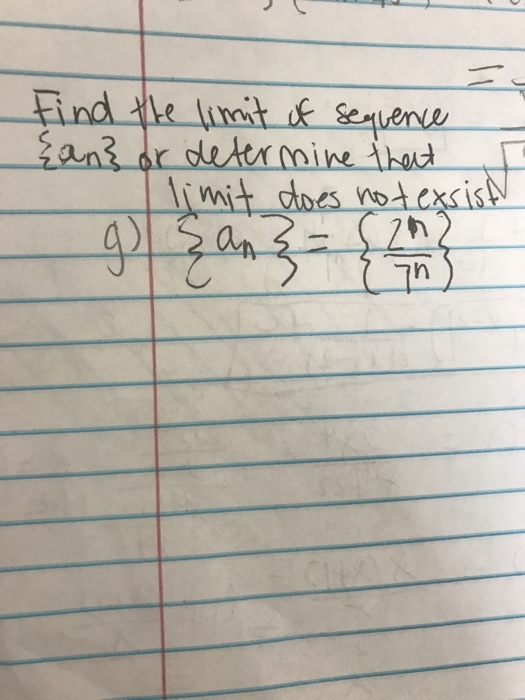 =
Find the limit of sequence
{an} or determine that
limit does not exsist
g) {an} = {2^n/7^n}